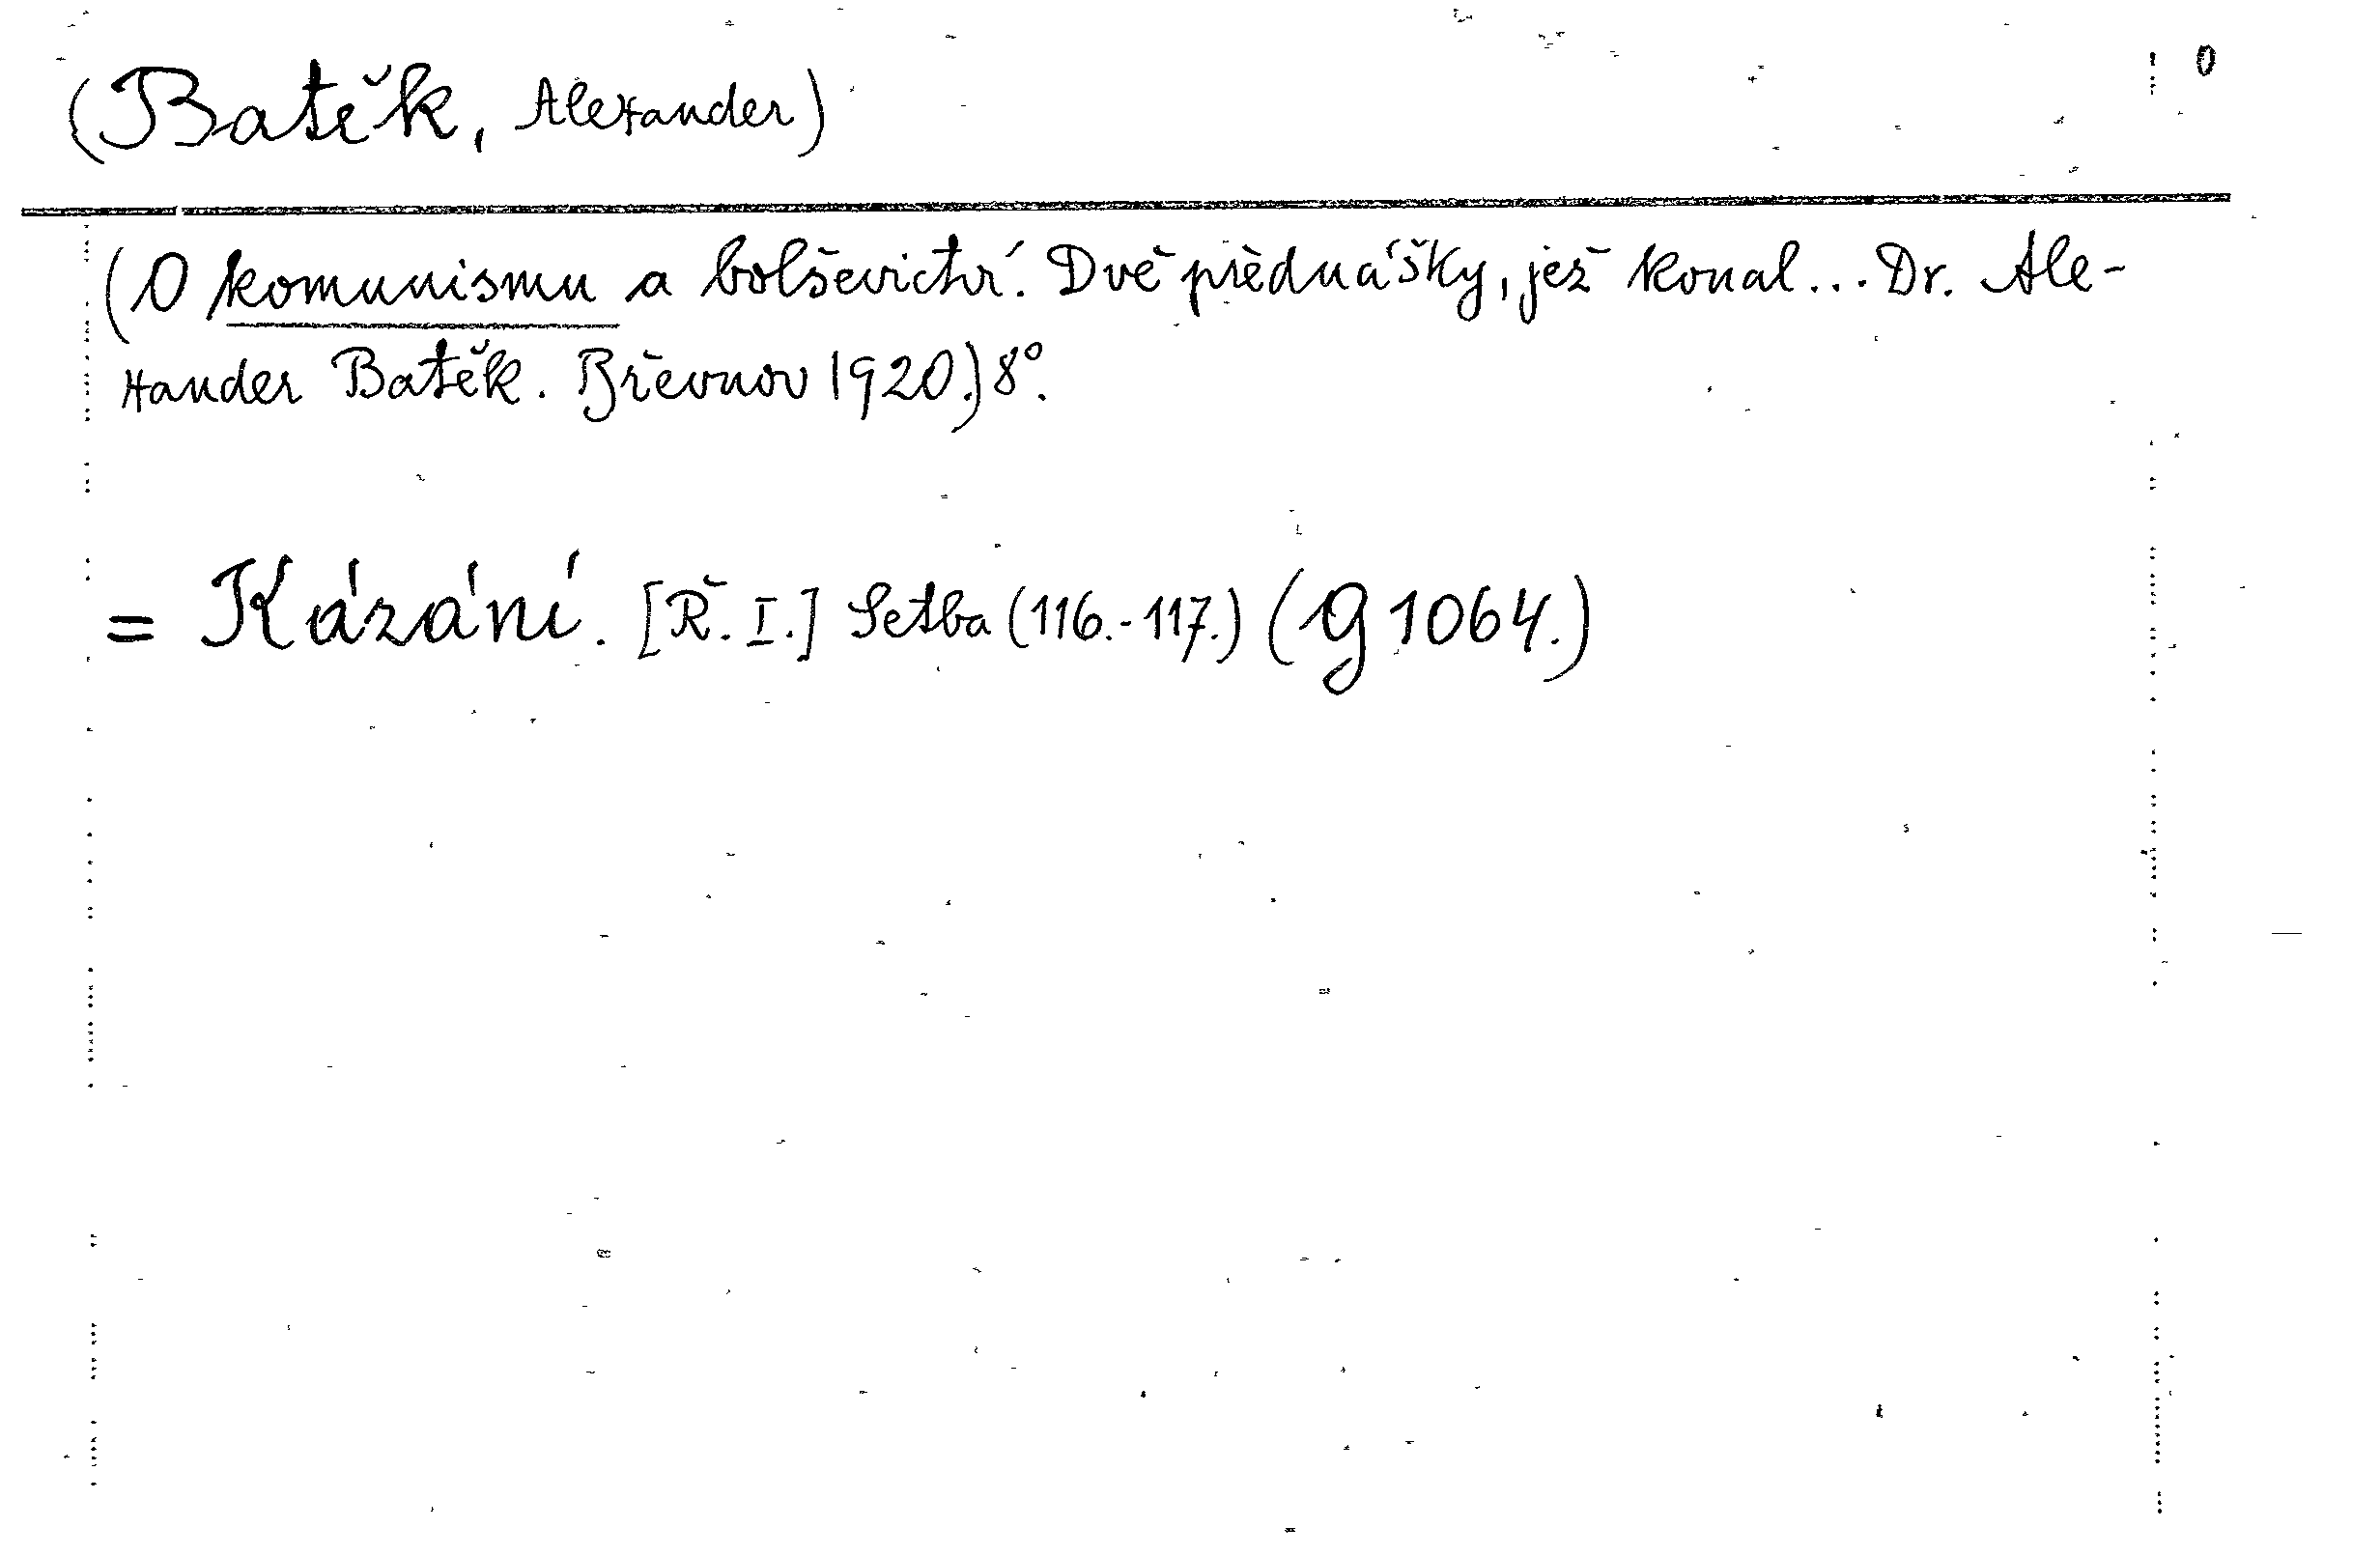 (Batěk, Alexander) 0
(O komunismu a bolševictví. Dvě přednášky, jež konal... Dr. Ale-
xander Batěk. Břevnov 1920.) 8°.
= Kázání. [Ř. I.] Setba (116.-117.) (g 1064.)